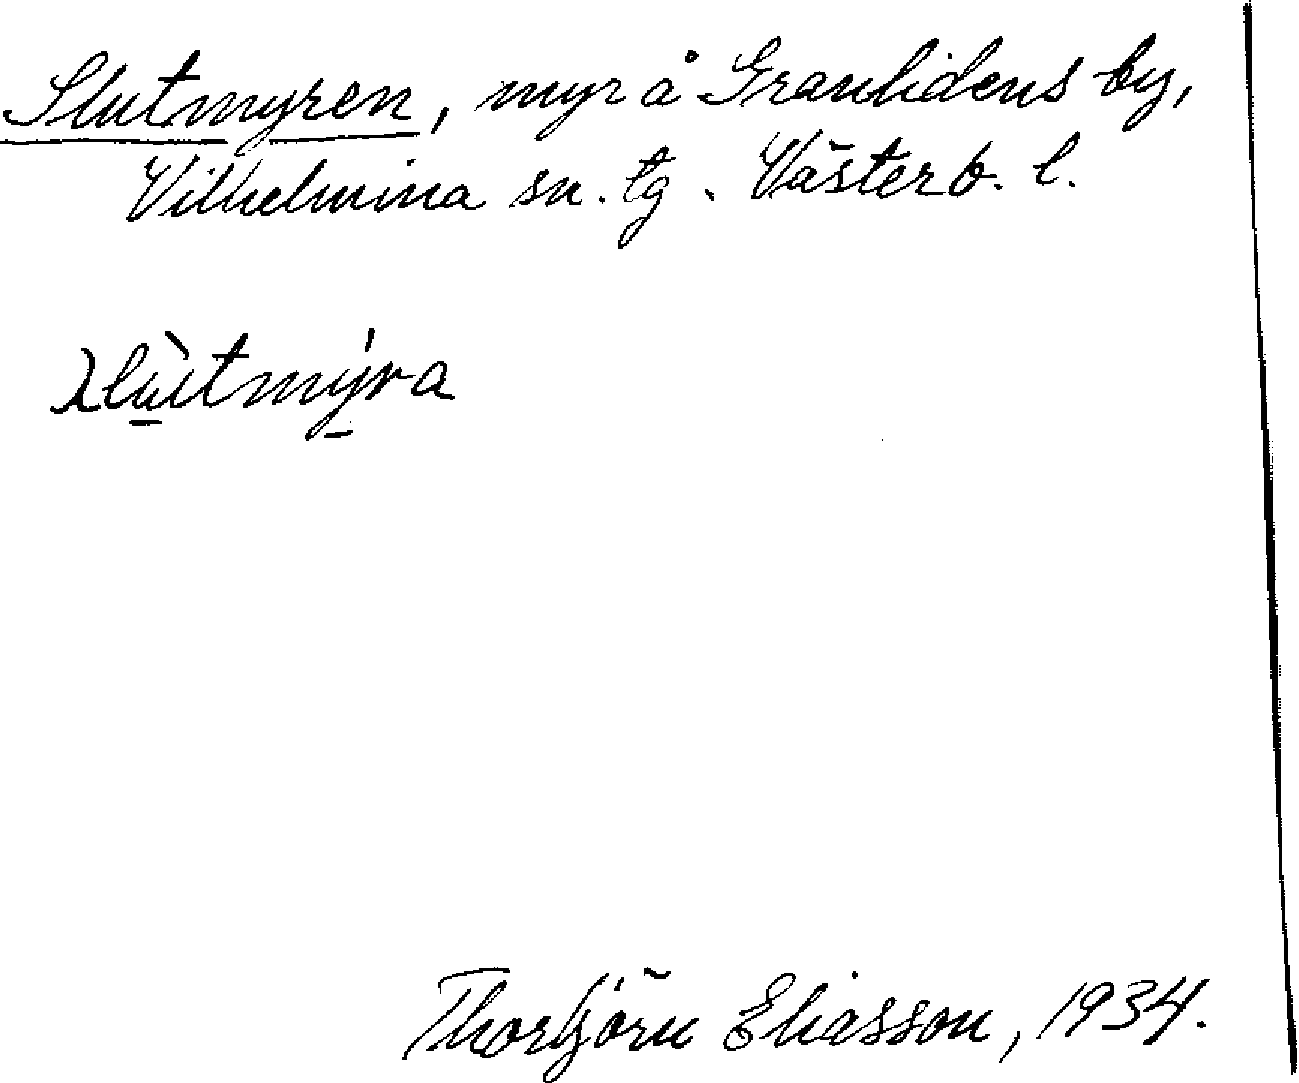 Slutmyren, myr å Granlidens by,
Vilhelmina sn. tg. Västerb. l.
slù̱tmý̱ra
Thorbjörn Eliasson, 1934.